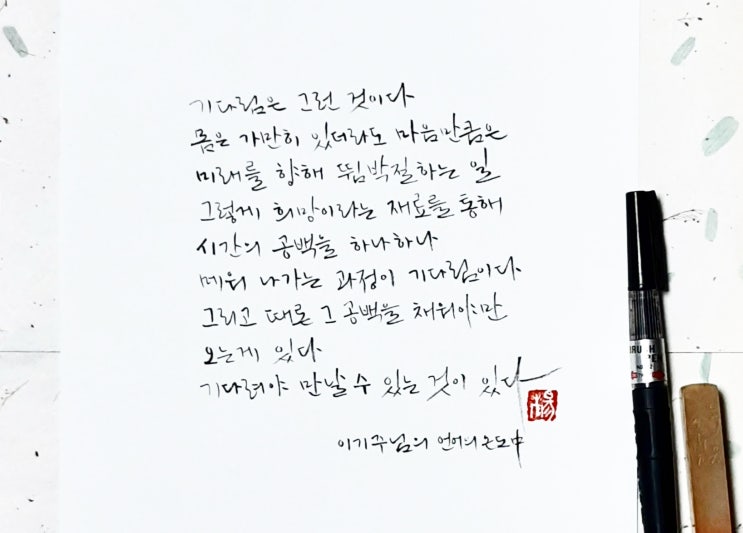 기다림은 그런 것이다
몸은 가만히 있더라도 마음만큼은
미래를 향해 뜀박질하는 일
그렇게 희망이라는 재료를 통해
시간의 공백을 하나하나
메워 나가는 과정이 기다림이다
그리고 때론 그 공백을 채워야만
오는게 있다
기다려야 만날 수 있는 것이 있다
이기주님의 언어의 온도 中